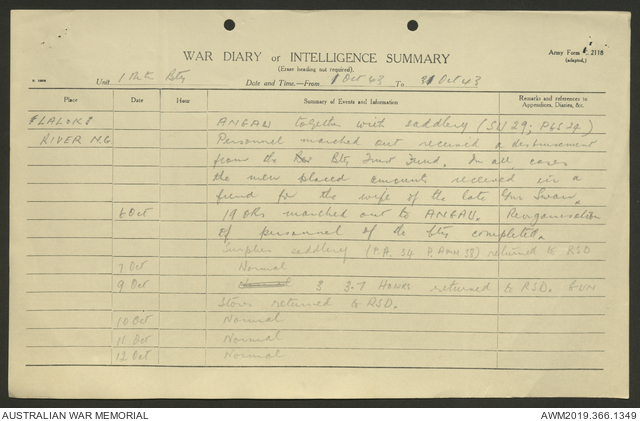 WAR DIARY or INTELLIGENCE SUMMARY
(Erase heading not required).
Army Form C. 2118
(adapted.)
Unit 1 Mtn Bty
Date and Time.—From 1 Oct 43 To 31 Oct 43
Place Date Hour Summary of Events and Information Remarks and references to Appendices, Diaries, &c.
LALOKI ANGAU together with saddlery (SU 29; PGS 24)
RIVER N.G. Personnel marched out received a disbursement
from the Bty Trust Fund. In all cases
the men placed amounts received in a
fund for the wife of the late Gnr Swan.
6 Oct 19 ORs marched out to ANGAU. Reorganisation
of personnel of the bty completed.
Surplus saddlery (P.A. 34 P. 38) returned to RSD
7 Oct Normal
9 Oct Normal 3 3.7 Hows returned to RSD. GUN
Stores returned to RSD.
10 Oct Normal
11 Oct Normal
12 Oct Normal
AUSTRALIAN WAR MEMORIAL
AWM2019.366.1349